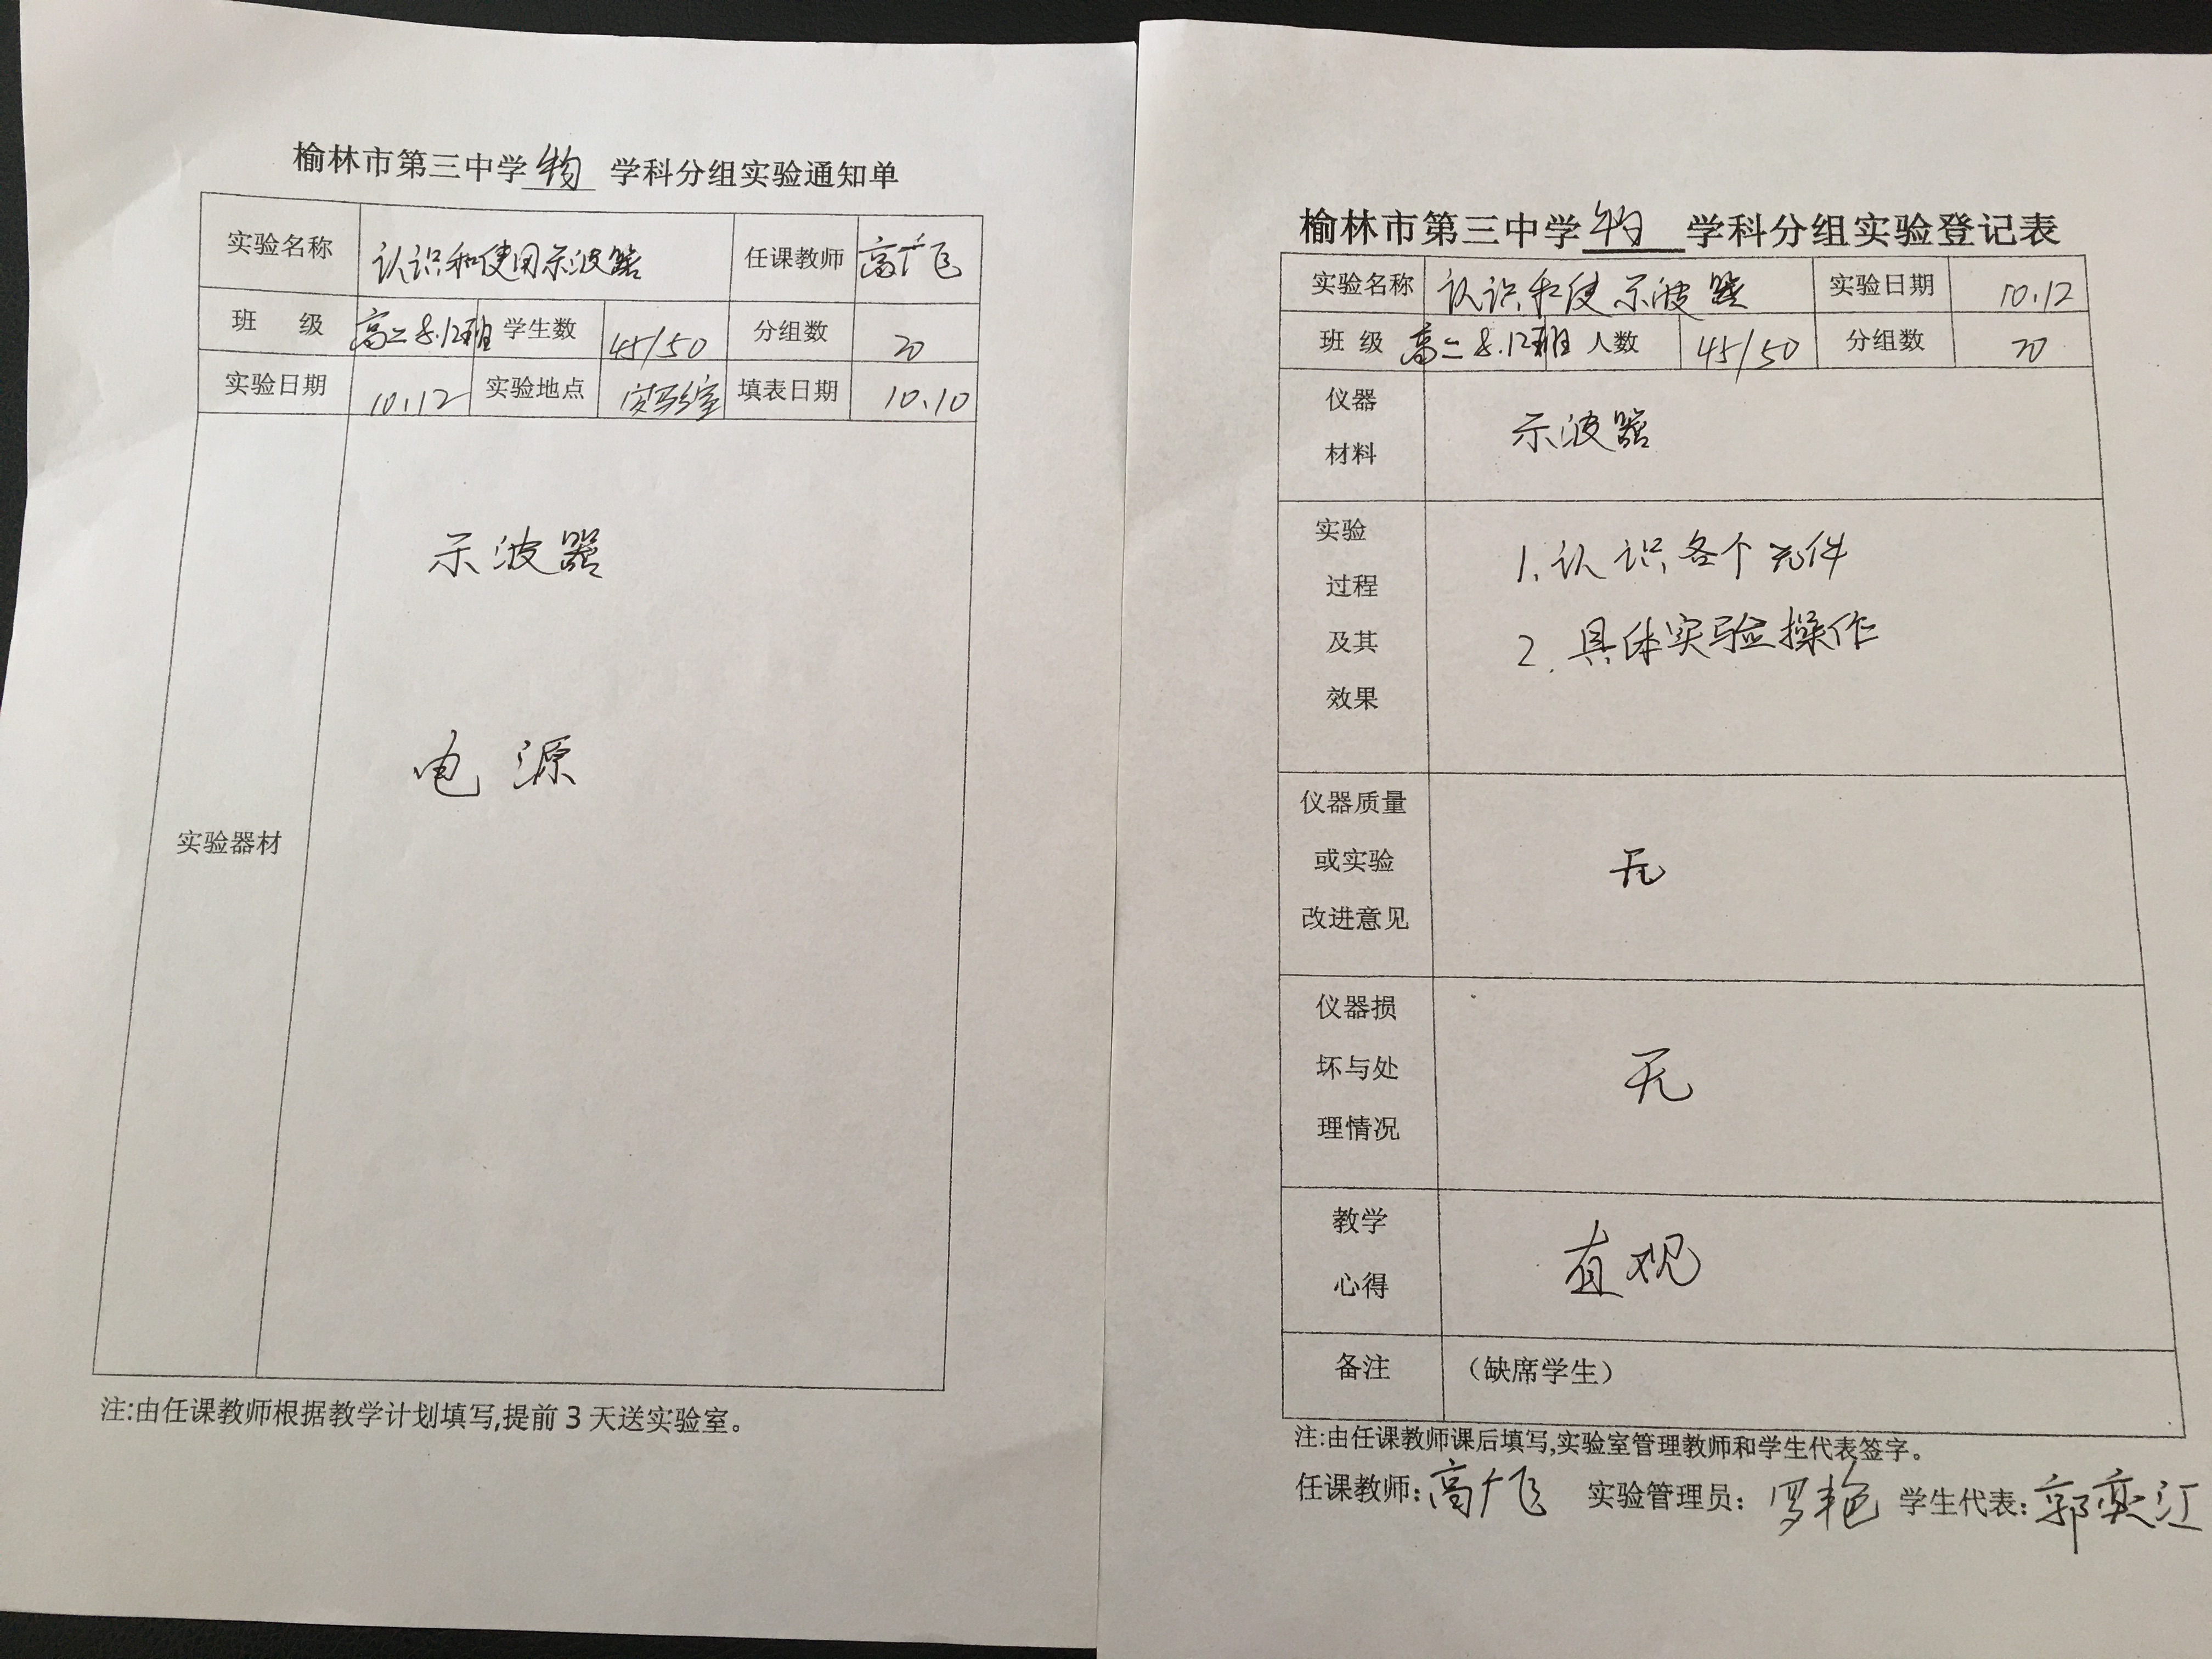 榆林市第三中学 物 学科分组实验通知单
实验名称 认识和使用示波器 任课教师 高广飞
班 级 高二8.12班 学生数 45/50 分组数 20
实验日期 10.12 实验地点 实验室 填表日期 10.10
实验器材
示波器
电源
注:由任课教师根据教学计划填写,提前3天送实验室。
榆林市第三中学 物 学科分组实验登记表
实验名称 认识和使示波器 实验日期 10.12
班 级 高二8.12班 人数 45/50 分组数 20
仪器
材料
示波器
实验
过程
及其
效果
1.认识各个元件
2.具体实验操作
仪器质量
或实验
改进意见
无
仪器损
坏与处
理情况
无
教学
心得
直观
备注 (缺席学生)
注:由任课教师课后填写,实验室管理教师和学生代表签字。
任课教师:高广飞 实验管理员:罗艳 学生代表:郭奕江